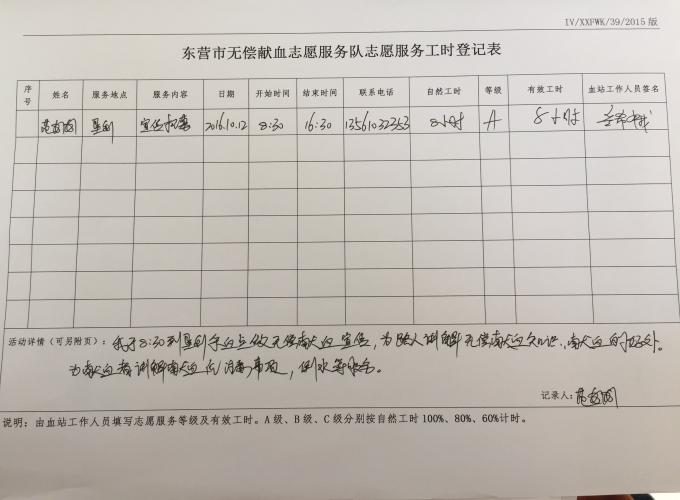 IV/XXFWK/39/2015 版
东营市无偿献血志愿服务队志愿服务工时登记表
序号 姓名 服务地点 服务内容 日期 开始时间 结束时间 联系电话 自然工时 等级 有效工时 血站工作人员签名
垦利 宣传招募 2016.10.12 8:30 16:30 13561032353 8小时 A 8小时
活动详情（可另附页）：我于8:30到垦利采血点做无偿献血宣传，为路人讲解无偿献血知识，献血的好处。
为献血者讲解献血后注意事项，倒水等服务。
记录人：
说明：由血站工作人员填写志愿服务等级及有效工时。A 级、B 级、C 级分别按自然工时 100%、80%、60%计时。